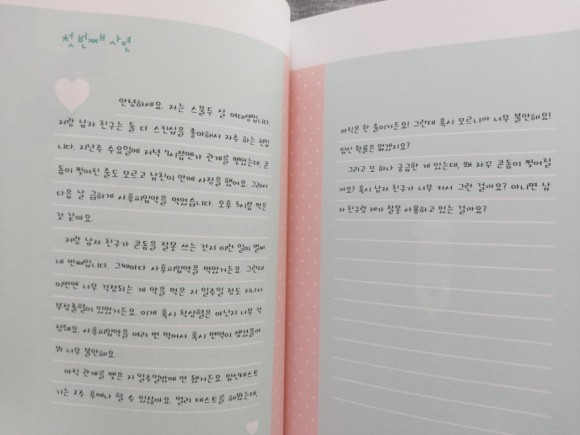 첫 번째 사연
안녕하세요. 저는 스물두 살 여대생입니다.
저랑 남자 친구는 둘 다 스킨십을 좋아해서 자주 하는 편입
니다. 지난주 수요일에 저녁 7시쯤엔가 관계를 맺었는데, 콘
돔이 찢어진 줄도 모르고 남친이 안에 사정을 했어요. 그래서
다음 날 급하게 사후피임약을 먹었습니다. 오후 5시쯤 먹은
것 같아요.
저랑 남자 친구가 콘돔을 잘못 쓰는 건지 이런 일이 벌써
네 번째입니다. 그때마다 사후피임약을 먹었거든요. 그런데
이번엔 너무 걱정되는 게 약을 먹은 지 일주일 정도 지나서
부정출혈이 있었거든요. 이게 혹시 착상혈은 아닌지 너무 걱
정돼요. 사후피임약을 여러 번 먹어서 혹시 면역이 생겼을까
봐 너무 불안해요.
아직 관계를 맺은 지 일주일밖에 안 됐거든요. 임신테스트
기는 2주 후에나 할 수 있잖아요. 얼리 테스트를 해봤는데,
아직은 한 줄이거든요! 그런데 혹시 모르니까 너무 불안해요!
임신 확률은 없겠지요?
그리고 또 하나 궁금한 게 있는데, 왜 자꾸 콘돔이 찢어질
까요? 혹시 남자 친구가 너무 커서 그런 걸까요? 아니면 남
자 친구랑 제가 잘못 사용하고 있는 걸까요?